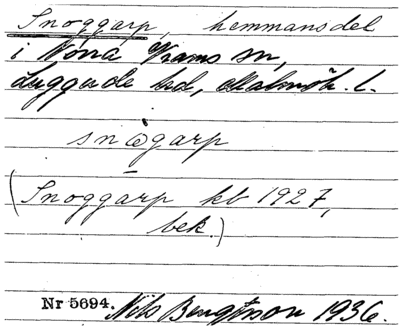 Snoggarp, hemmansdel
i Norra Vrams sn,
Luggude hd, Malmöh. l.
snøgarp
(Snoggarp kb 1927,
bek.)
Nr 5694. Nils Bengtson 1936.